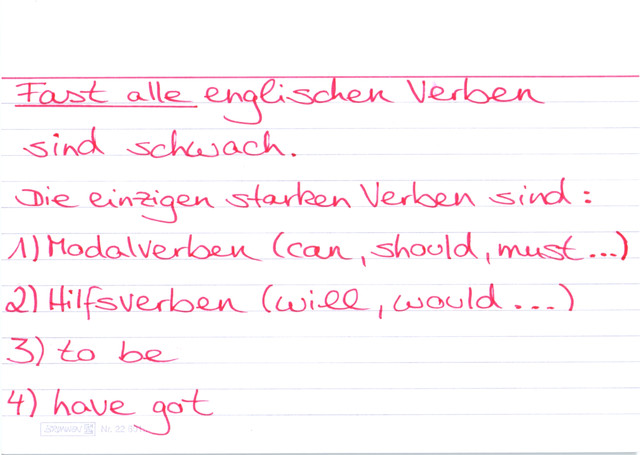 Fast alle englischen Verben
sind schwach.
Die einzigen starken Verben sind:
1) Modalverben (can, should, must...)
2) Hilfsverben (will, would...)
3) to be
4) have got
Nr. 22